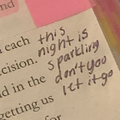 this
each night is
cision. sparkling
d in the don't you
getting us let it go